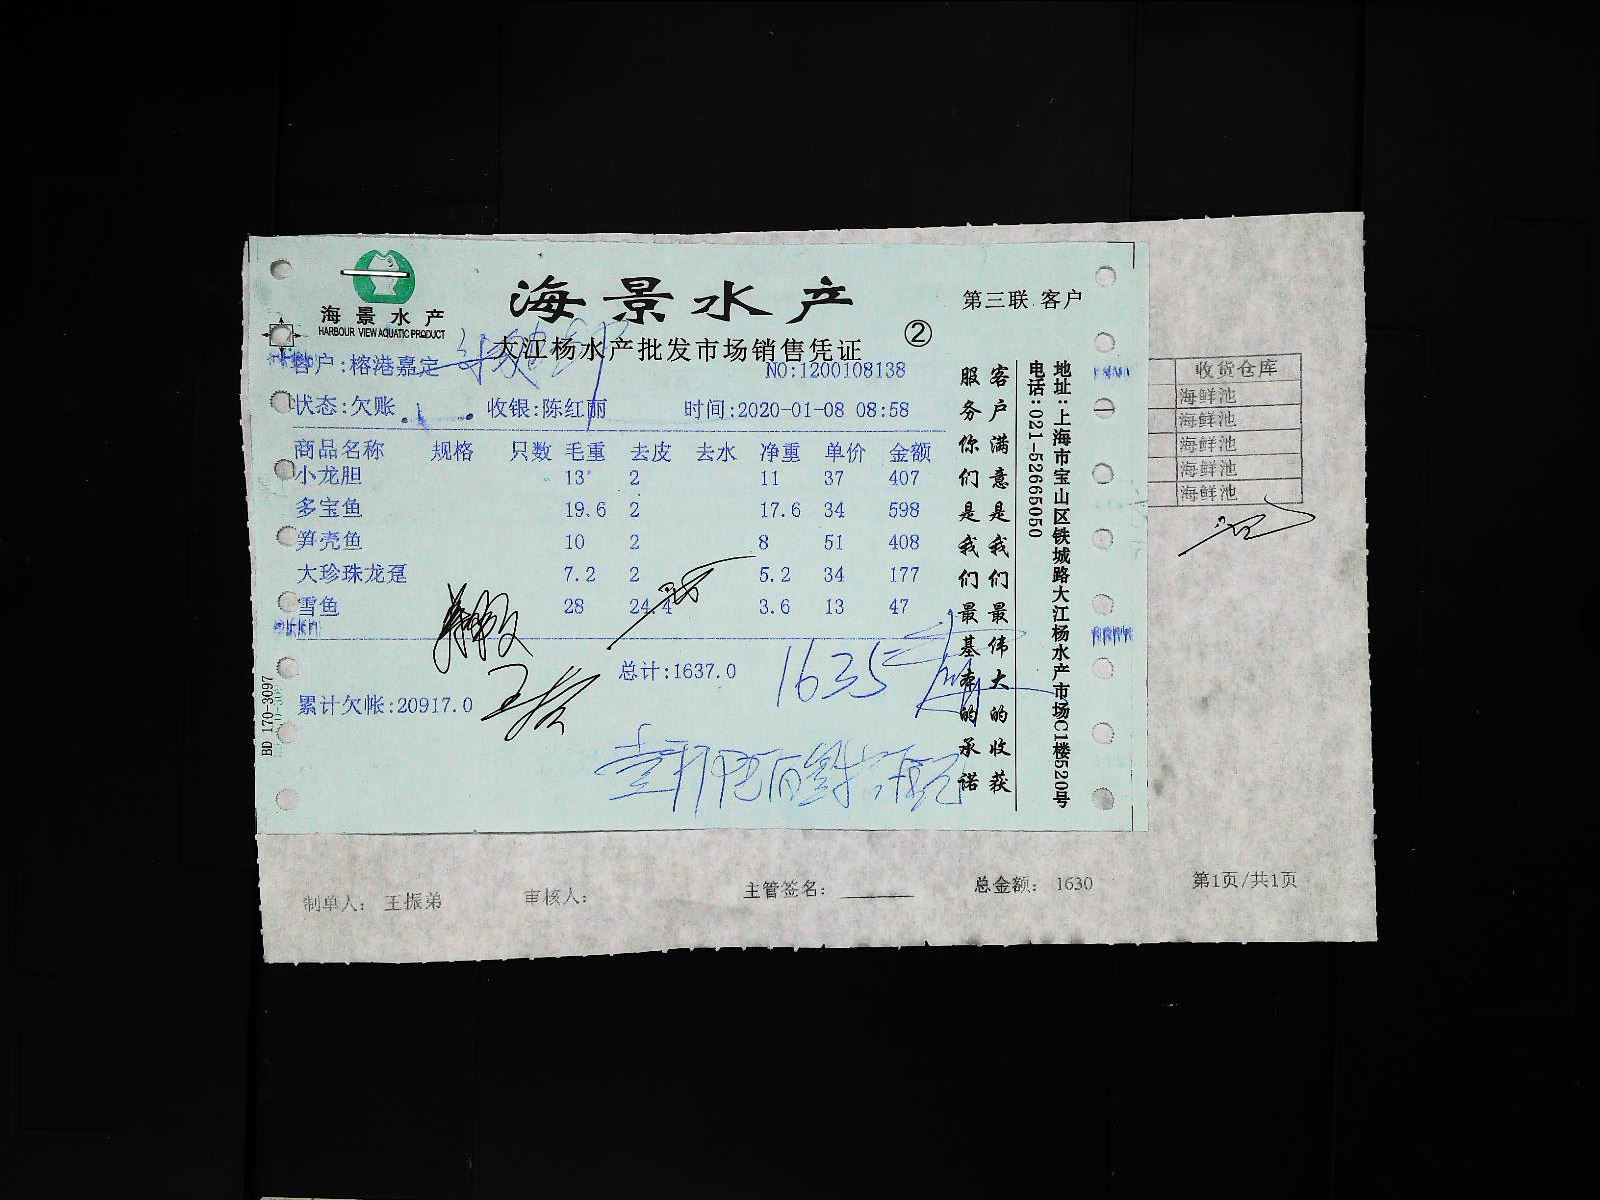 海景水产
HARBOUR VIEW AQUATIC PRODUCT
海景水产
第三联 客户
大江杨水产批发市场销售凭证
②
客户:榕港嘉定
NO:1200108138
状态:欠账 收银:陈红丽 时间:2020-01-08 08:58
商品名称 规格 只数 毛重 去皮 去水 净重 单价 金额
小龙胆 13 2 11 37 407
多宝鱼 19.6 2 17.6 34 598
笋壳鱼 10 2 8 51 408
大珍珠龙趸 7.2 2 5.2 34 177
雪鱼 28 24.4 3.6 13 47
总计:1637.0
1635
累计欠帐:20917.0
BD 170-3097
客户满意是我们最伟大的收获
服务你们是我们最基本的承诺
地址:上海市宝山区铁城路大江杨水产市场C1楼520号
电话:021-52665050
收货仓库
海鲜池
海鲜池
海鲜池
海鲜池
海鲜池
制单人: 王振弟 审核人: 主管签名: 总金额: 1630 第1页/共1页